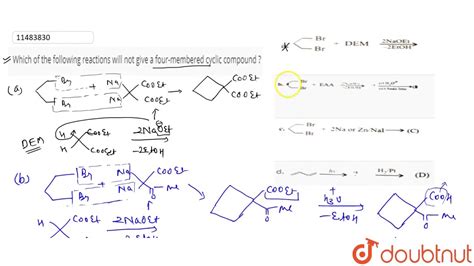 11483830
Which of the following reactions will not give a four-membered cyclic compound ?
(a)
Br
Na
COOEt
+
COOEt
Br
Na
→
COOEt
COOEt
DEM
H
COOEt
H
COOEt
2NaOEt
-2EtOH
(b)
Br
Na
COOEt
+
Me
Br
Na
O
COOEt
Me
O
+
H3O
-EtOH
COOH
Me
O
H
COOEt
2NaOEt
Br
Br
+ DEM
2NaOEt
-2EtOH
Br
Br
+ EAA
c.
Br
Br
+ 2Na or Zn NaI → (C)
d.
H2/Pt
(D)
doubtnut